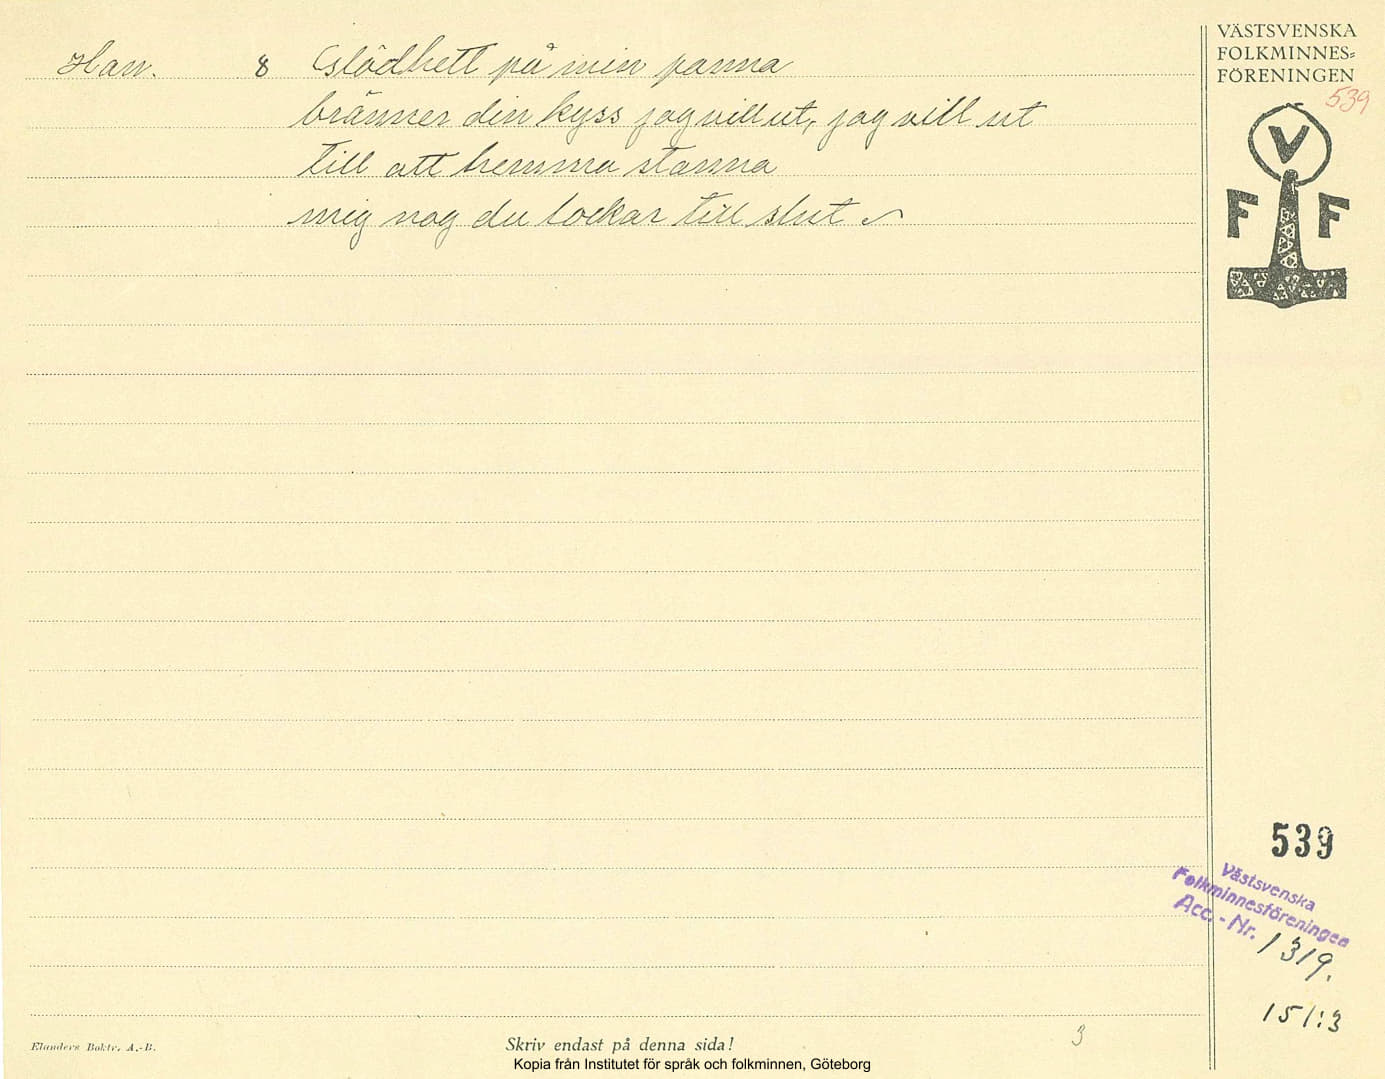 Han. 8 Glödhett på min panna
bränner din kyss jag vill ut, jag vill ut
till att hemma stanna
mig nog du lockar till slut
VÄSTSVENSKA
FOLKMINNES=
FÖRENINGEN
539
V
F F
539
Västsvenska
Folkminnesföreningen
Acc. - Nr. 1319.
151:3
3
Elanders Boktr. A.-B.
Skriv endast på denna sida!
Kopia från Institutet för språk och folkminnen, Göteborg